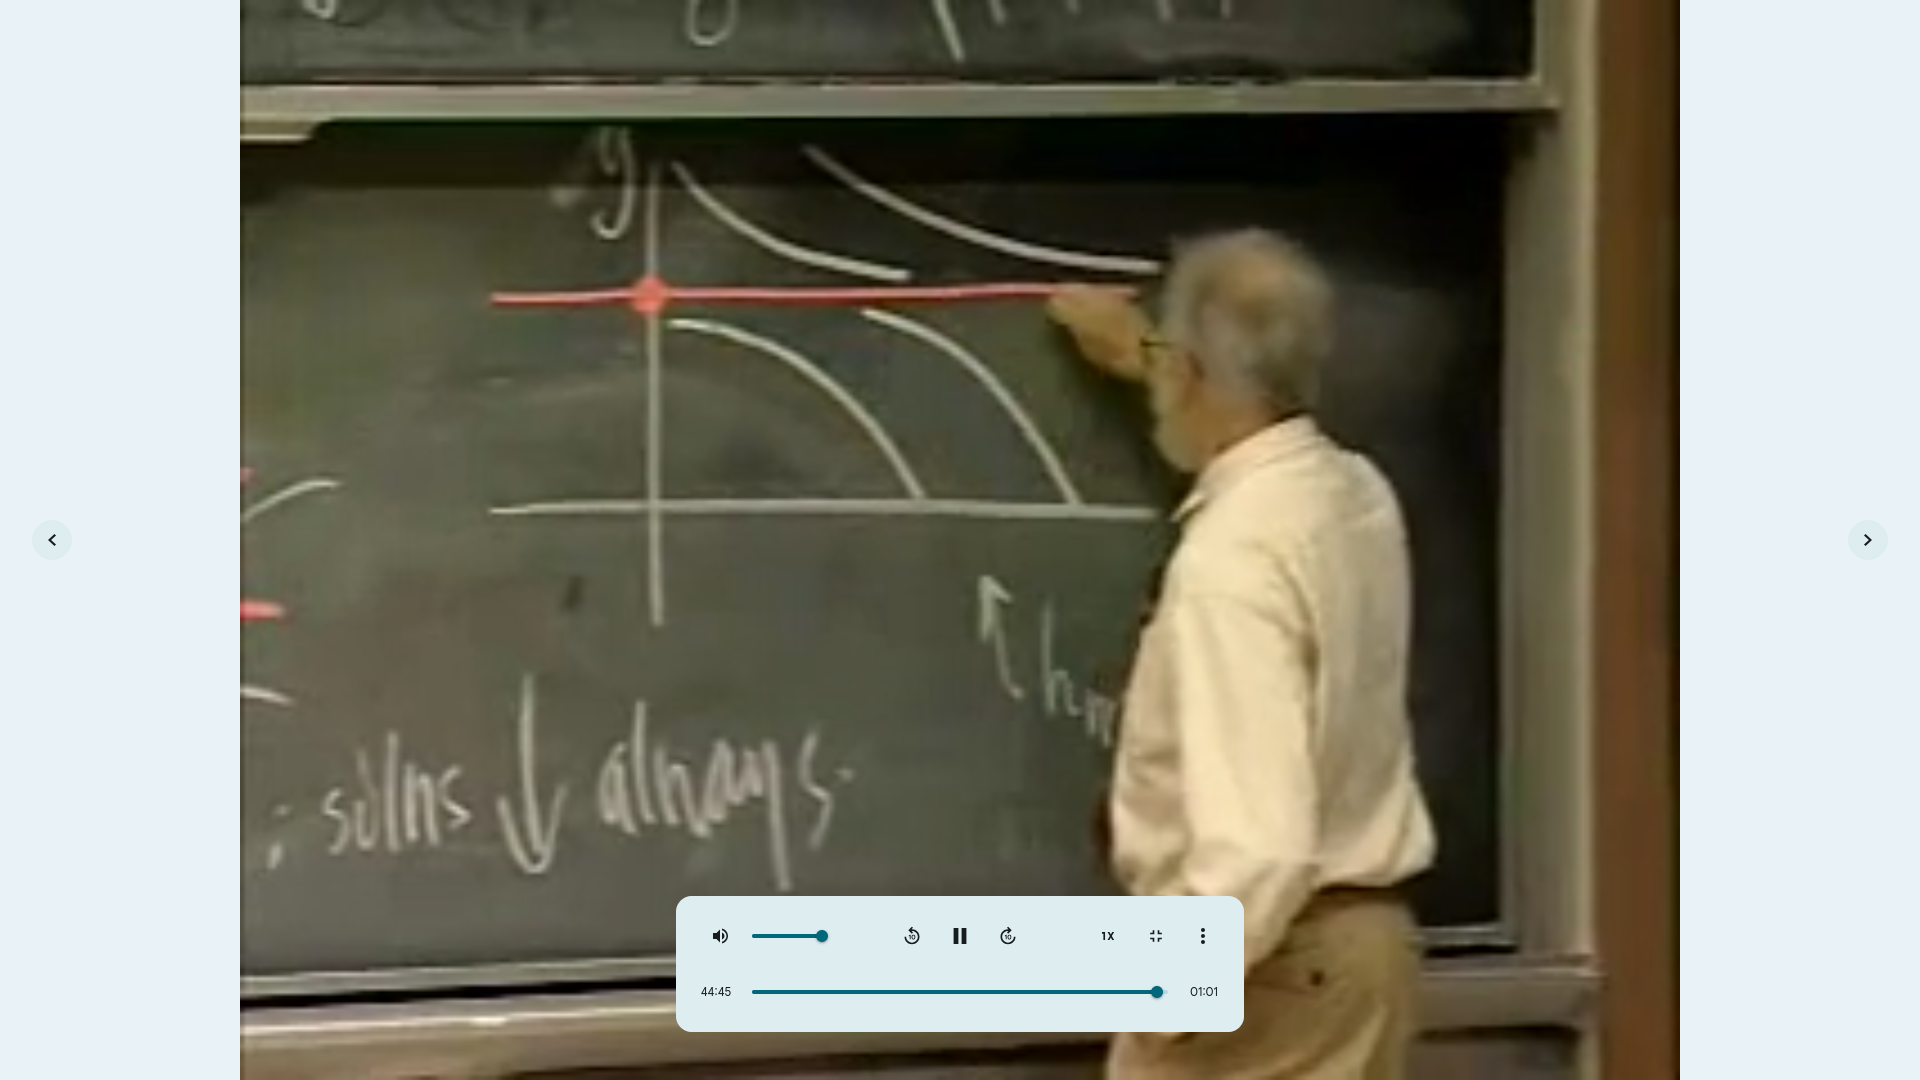 y
: solns ↓ always.
1X
44:45
01:01